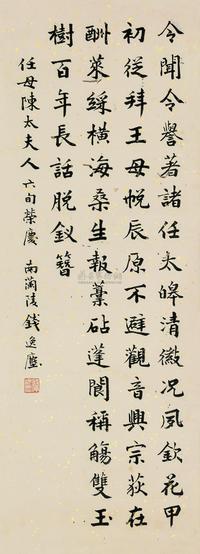 令聞令譽著諸任太皞清徽況夙欽花甲
初從拜王母帨辰原不避觀音興宗荻在
酬萊綵橫海桑生報藁砧蓬閬稱觴雙玉
樹百年長話脫釵簪
任母陳太夫人六旬榮慶 南蘭陵錢逸塵